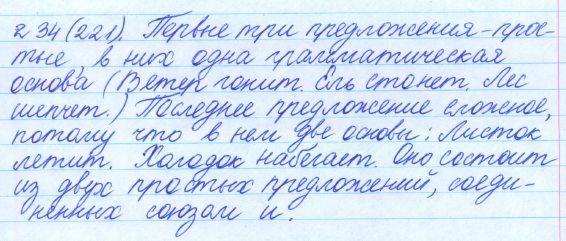 № 34 (221). Первые три предложения - прос-
тые, в них одна грамматическая
основа (Ветер гонит. Ель стонет. Лес
шепчет.) Последнее предложение сложное,
потому что в нем две основы: Листок
летит. Холодок набегает. Оно состоит
из двух простых предложений, соеди-
ненных союзом и.